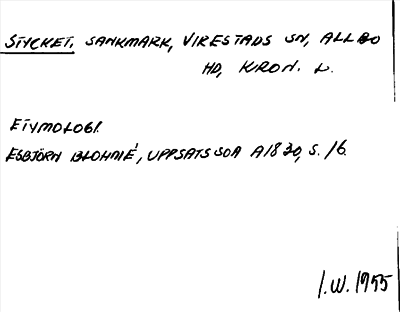 STYCKET. SANKMARK, VIRESTADS SN, ALLBO
HD, KRON. L.
ETYMOLOGI.
ESBJÖRN BLOHMÉ, UPPSATS SOA A1830, S. 16.
I.W. 1955